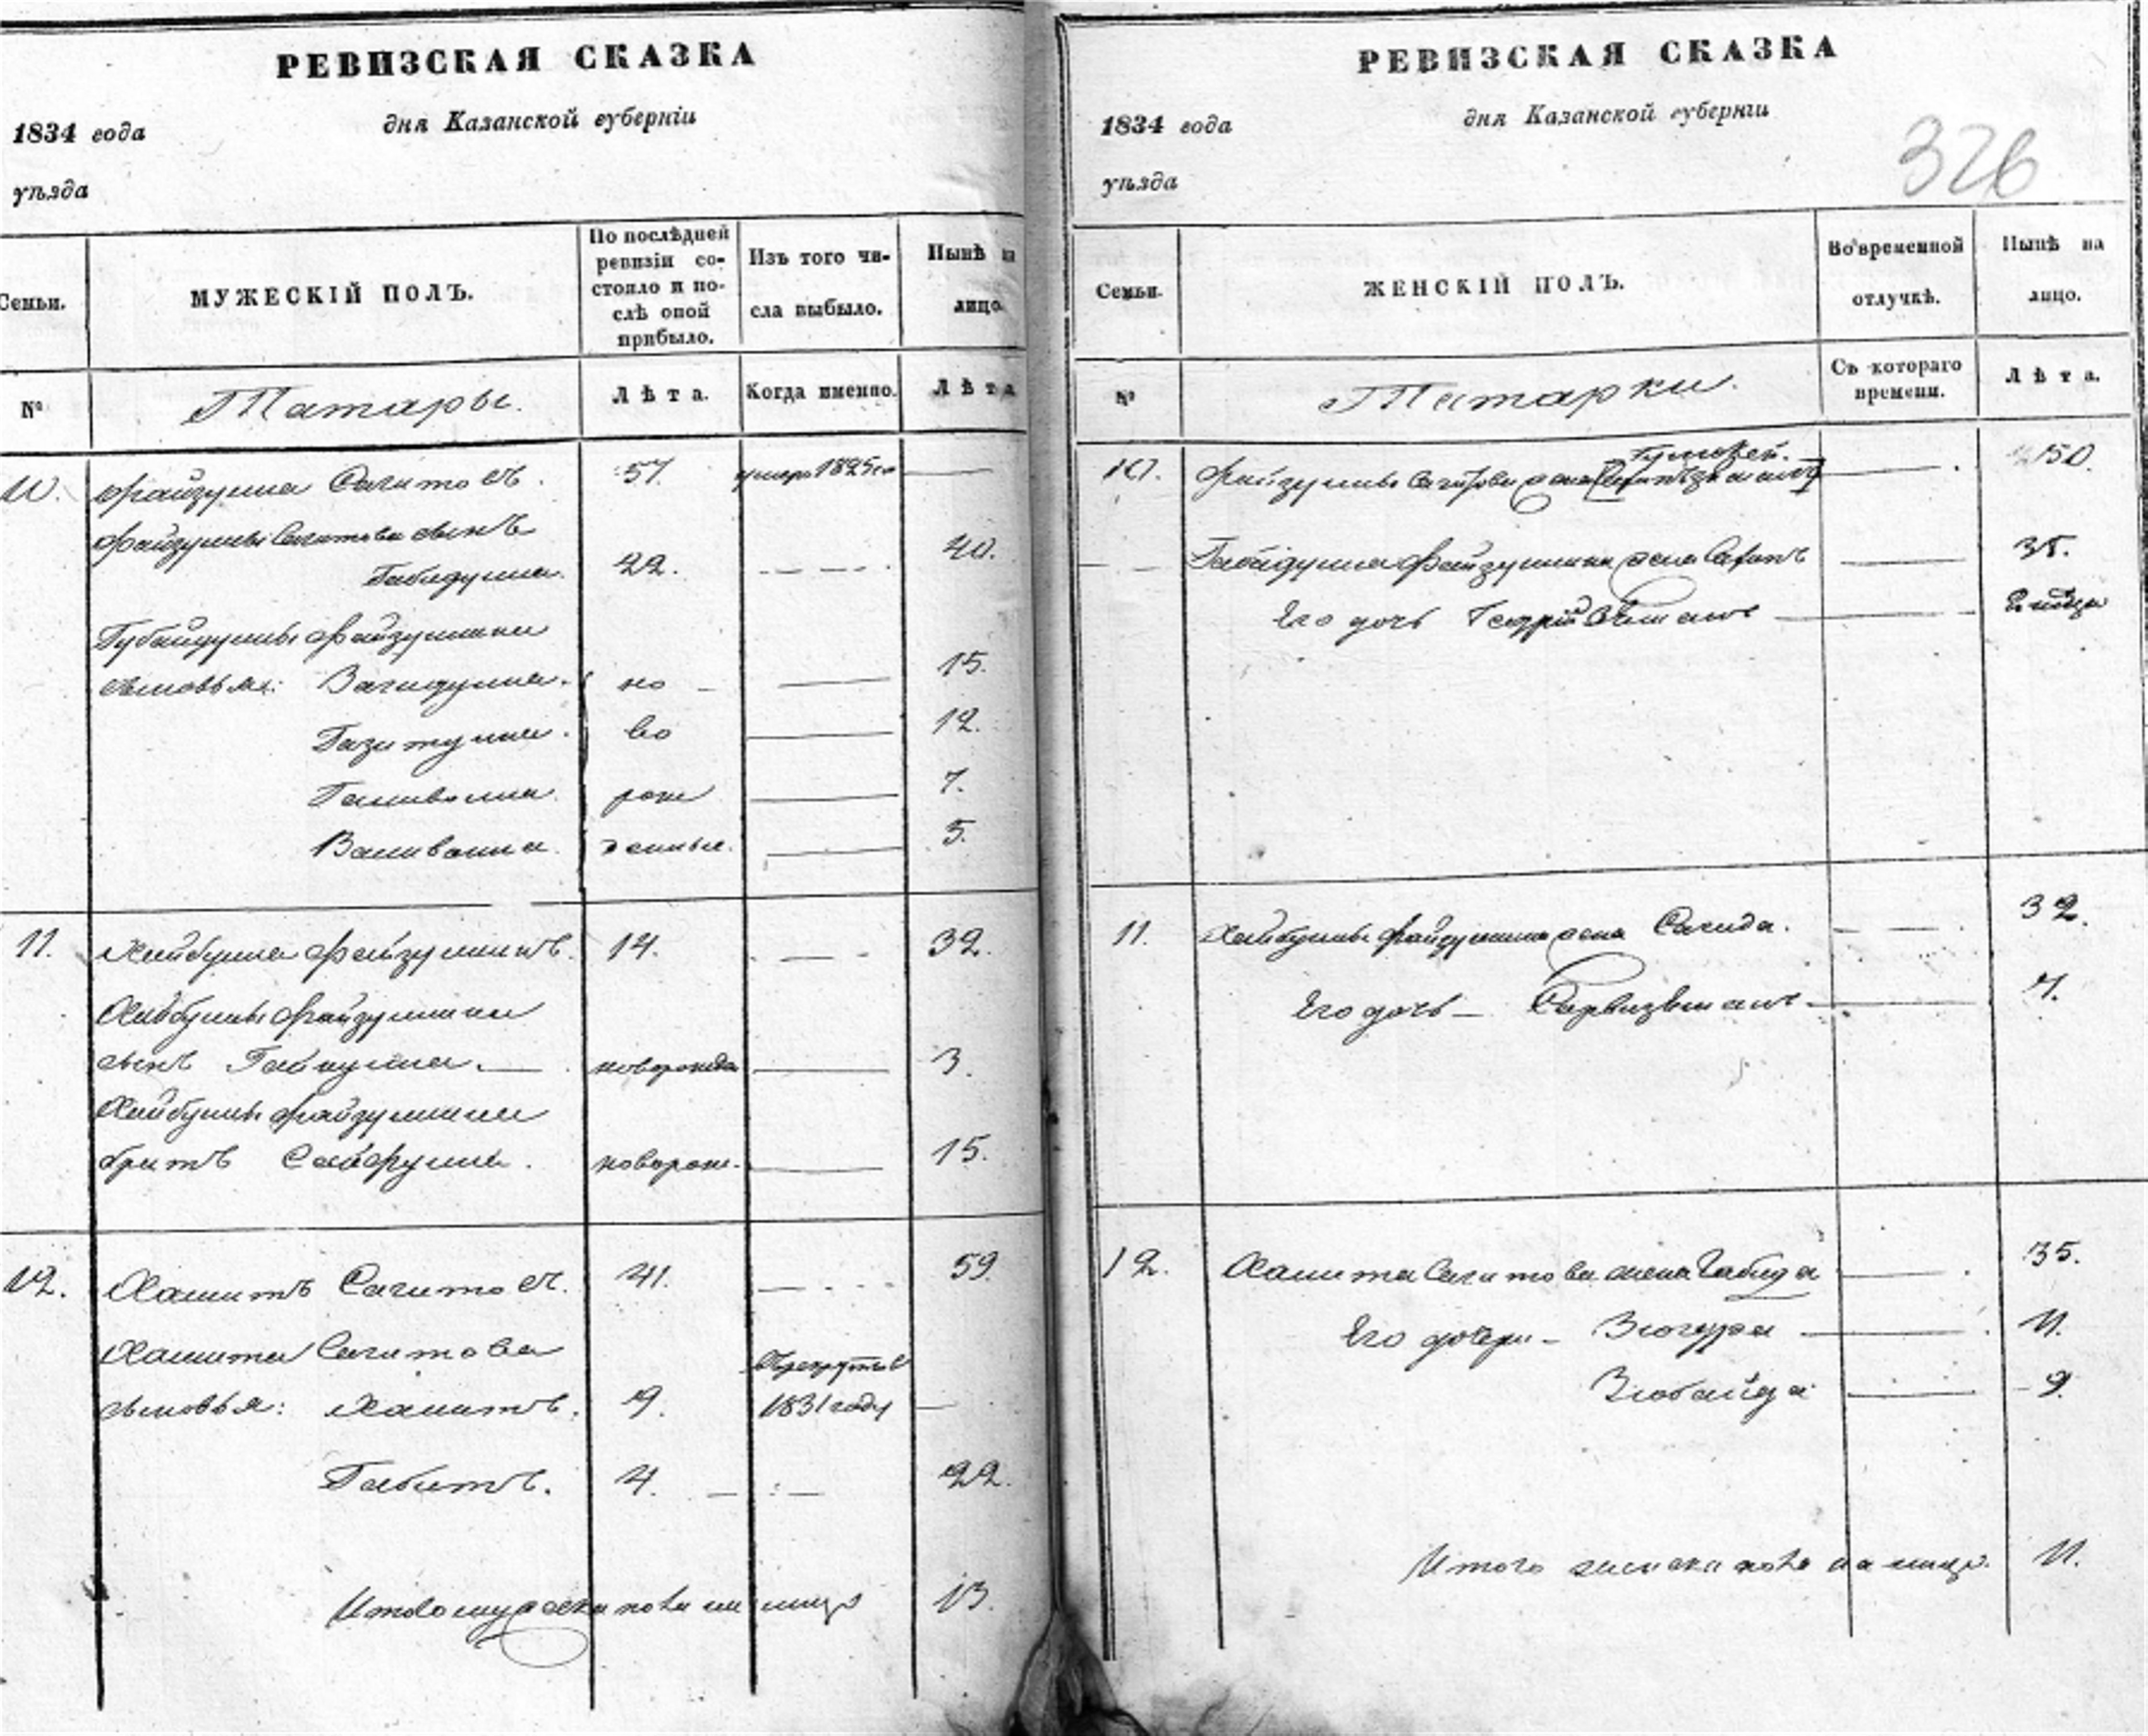 РЕВИЗСКАЯ СКАЗКА
1834 года
дня Казанской губерніи
уѣзда
Семьи.
МУЖЕСКІЙ ПОЛЪ.
По послѣдней ревизіи состояло и послѣ оной прибыло.
Изъ того числа выбыло.
Нынѣ на лицо.
№
Татары.
Лѣта.
Когда именно.
Лѣта
10. Файзулла Сагитовъ. 57. умеръ 1825го —
Файзуллы Сагитова сынъ
Габидулла. 22. 40.
Губайдуллы Файзуллина
сыновья: Вагидулла. но 15.
Газизулла. во 12.
Галиволла. рож 7.
Валиволла. денные. 5.
11. Хайбулла Файзуллинъ. 14. 32.
Хайбуллы Файзуллина
сынъ Гайнулла. новорожден 3.
Хайбуллы Файзуллина
братъ Сайфулла. новорож. 15.
12. Хамитъ Сагитовъ. 41. 59.
Хамита Сагитова
сыновья: Халитъ. 9. въ рекруты въ 1831 году —
Габитъ. 4. 22.
Итого мужеска пола на лицо 13.
РЕВИЗСКАЯ СКАЗКА
1834 года
дня Казанской губерніи
уѣзда
326
Семьи.
ЖЕНСКІЙ ПОЛЪ.
Во временной отлучкѣ.
Нынѣ на лицо.
№
Татарки.
Съ котораго времени.
Лѣта.
10. Файзуллы Сагитова жена 50.
Габайдуллы Файзуллина жена 38.
Его дочь
11. Хайбуллы Файзуллина жена Сагида. 32.
Его дочь — 7.
12. Хамита Сагитова жена Габида 35.
Его дочери — Зюгура 11.
Зюбайда 9.
Итого женска пола на лицо. 11.